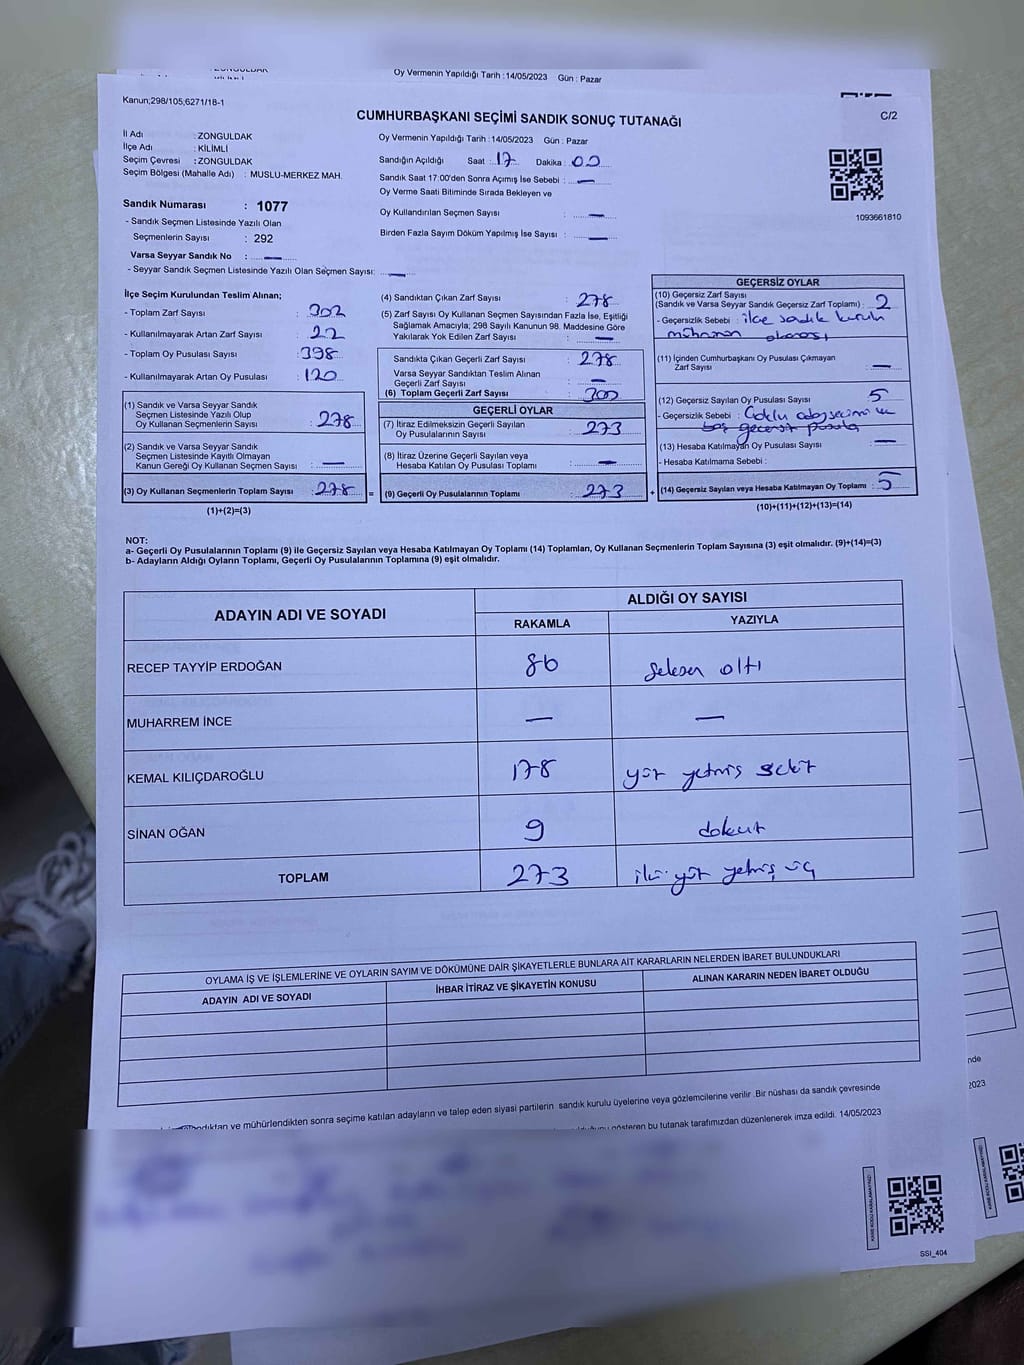 Oy Vermenin Yapıldığı Tarih :14/05/2023 Gün : Pazar
Kanun;298/105,6271/18-1
C/2
CUMHURBAŞKANI SEÇİMİ SANDIK SONUÇ TUTANAĞI
İl Adı : ZONGULDAK
İlçe Adı : KİLİMLİ
Seçim Çevresi : ZONGULDAK
Seçim Bölgesi (Mahalle Adı) : MUSLU-MERKEZ MAH.
Oy Vermenin Yapıldığı Tarih :14/05/2023 Gün : Pazar
Sandığın Açıldığı Saat : 17 Dakika : 00
Sandık Saat 17:00'den Sonra Açımış İse Sebebi : —
Oy Verme Saati Bitiminde Sırada Bekleyen ve
Oy Kullandırılan Seçmen Sayısı : —
Birden Fazla Sayım Döküm Yapılmış İse Sayısı : —
1093661810
Sandık Numarası : 1077
- Sandık Seçmen Listesinde Yazılı Olan
Seçmenlerin Sayısı : 292
Varsa Seyyar Sandık No : —
- Seyyar Sandık Seçmen Listesinde Yazılı Olan Seçmen Sayısı: —
İlçe Seçim Kurulundan Teslim Alınan;
- Toplam Zarf Sayısı : 302
- Kullanılmayarak Artan Zarf Sayısı : 22
- Toplam Oy Pusulası Sayısı : 398
- Kullanılmayarak Artan Oy Pusulası : 120
(1) Sandık ve Varsa Seyyar Sandık
Seçmen Listesinde Yazılı Olup
Oy Kullanan Seçmenlerin Sayısı : 278
(2) Sandık ve Varsa Seyyar Sandık
Seçmen Listesinde Kayıtlı Olmayan
Kanun Gereği Oy Kullanan Seçmen Sayısı : —
(3) Oy Kullanan Seçmenlerin Toplam Sayısı : 278 =
(1)+(2)=(3)
(4) Sandıktan Çıkan Zarf Sayısı : 278
(5) Zarf Sayısı Oy Kullanan Seçmen Sayısından Fazla İse, Eşitliği
Sağlamak Amacıyla; 298 Sayılı Kanunun 98. Maddesine Göre
Yakılarak Yok Edilen Zarf Sayısı : —
Sandıkta Çıkan Geçerli Zarf Sayısı : 278
Varsa Seyyar Sandıktan Teslim Alınan
Geçerli Zarf Sayısı : —
(6) Toplam Geçerli Zarf Sayısı : 300
GEÇERLİ OYLAR
(7) İtiraz Edilmeksizin Geçerli Sayılan
Oy Pusulalarının Sayısı : 273
(8) İtiraz Üzerine Geçerli Sayılan veya
Hesaba Katılan Oy Pusulası Toplamı : —
(9) Geçerli Oy Pusulalarının Toplamı : 273 +
GEÇERSİZ OYLAR
(10) Geçersiz Zarf Sayısı
(Sandık ve Varsa Seyyar Sandık Geçersiz Zarf Toplamı) : 2
- Geçersizlik Sebebi : ilçe sandık kurulu
mührünün olmaması
(11) İçinden Cumhurbaşkanı Oy Pusulası Çıkmayan
Zarf Sayısı : —
(12) Geçersiz Sayılan Oy Pusulası Sayısı : 5
- Geçersizlik Sebebi : Çoklu aday seçimi ve
boş geçersiz pusula
(13) Hesaba Katılmayan Oy Pusulası Sayısı : —
- Hesaba Katılmama Sebebi :
(14) Geçersiz Sayılan veya Hesaba Katılmayan Oy Toplamı : 5
(10)+(11)+(12)+(13)=(14)
NOT:
a- Geçerli Oy Pusulalarının Toplamı (9) ile Geçersiz Sayılan veya Hesaba Katılmayan Oy Toplamı (14) Toplamları, Oy Kullanan Seçmenlerin Toplam Sayısına (3) eşit olmalıdır. (9)+(14)=(3)
b- Adayların Aldığı Oyların Toplamı, Geçerli Oy Pusulalarının Toplamına (9) eşit olmalıdır.
ADAYIN ADI VE SOYADI
ALDIĞI OY SAYISI
RAKAMLA YAZIYLA
RECEP TAYYİP ERDOĞAN 86 Seksen altı
MUHARREM İNCE — —
KEMAL KILIÇDAROĞLU 178 yüz yetmiş sekiz
SİNAN OĞAN 9 dokuz
TOPLAM 273 iki yüz yetmiş üç
OYLAMA İŞ VE İŞLEMLERİNE VE OYLARIN SAYIM VE DÖKÜMÜNE DAİR ŞİKAYETLERLE BUNLARA AİT KARARLARIN NELERDEN İBARET BULUNDUKLARI
ADAYIN ADI VE SOYADI İHBAR İTİRAZ VE ŞİKAYETİN KONUSU ALINAN KARARIN NEDEN İBARET OLDUĞU
ve mühürlendikten sonra seçime katılan adayların ve talep eden siyasi partilerin sandık kurulu üyelerine veya gözlemcilerine verilir .Bir nüshası da sandık çevresinde
gösteren bu tutanak tarafımızdan düzenlenerek imza edildi. 14/05/2023
nde
2023
KARE KODU KARALAMAYINIZ!
KARE KODU KARALAMAYINIZ!
SSI_404